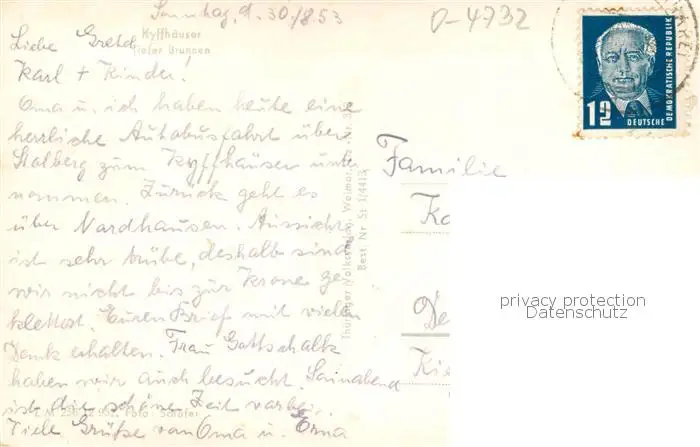 Sonntag, d. 30/8.53
D-4732
Kyffhäuser
Tiefer Brunnen
Liebe Gretel
Karl + Kinder!
Oma u. ich haben heute eine
herrliche Autobusfahrt über
Stolberg zum Kyffhäuser unter
nommen. Zurück geht es
über Nordhausen. Aussicht
ist sehr trübe, deshalb sind
wir nicht bis zur Krone ge-
klettert. Euren Brief mit vielen
Dank erhalten. Frau Gottschalk
haben wir auch besucht. Sonnabend
ist die schöne Zeit vorbei.
Viele Grüße von Oma u. Erna
Foto: Schäfer
Thüringer Volksverlag, Weimar
Best. Nr. St 1/4413
Familie
Ka
De
Ki
12
DEUTSCHE
DEMOKRATISCHE REPUBLIK
privacy protection
Datenschutz